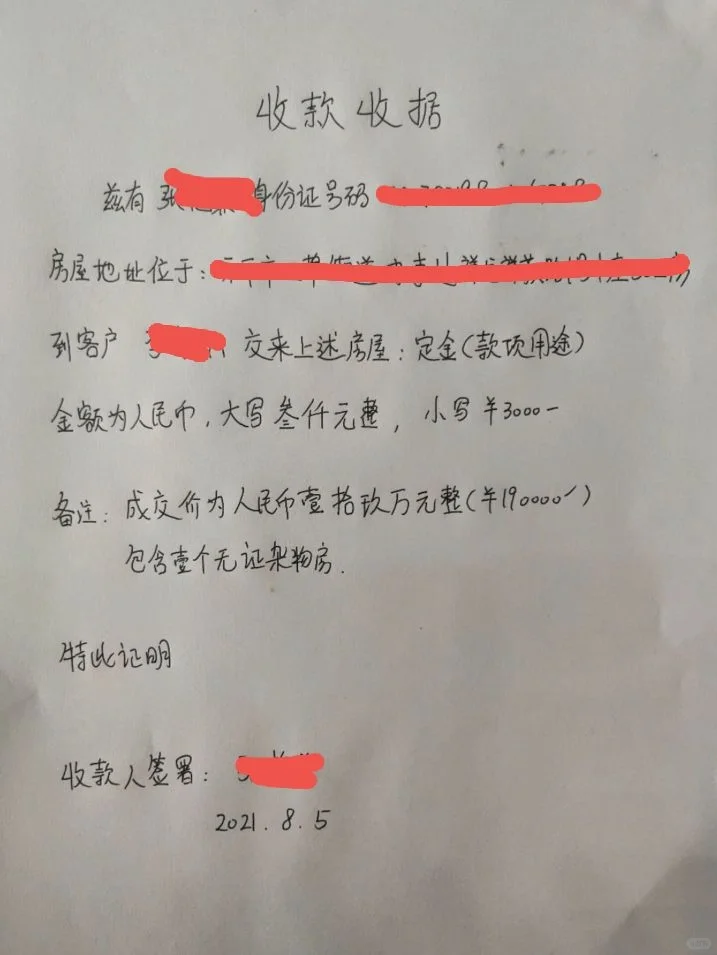 收款收据
兹有 张 身份证号码
房屋地址位于:
到客户 交来上述房屋:定金(款项用途)
金额为人民币,大写叁仟元整,小写¥3000-
备注:成交价为人民币壹拾玖万元整(¥190000-)
包含壹个无证杂物房.
特此证明
收款人签署:
2021.8.5